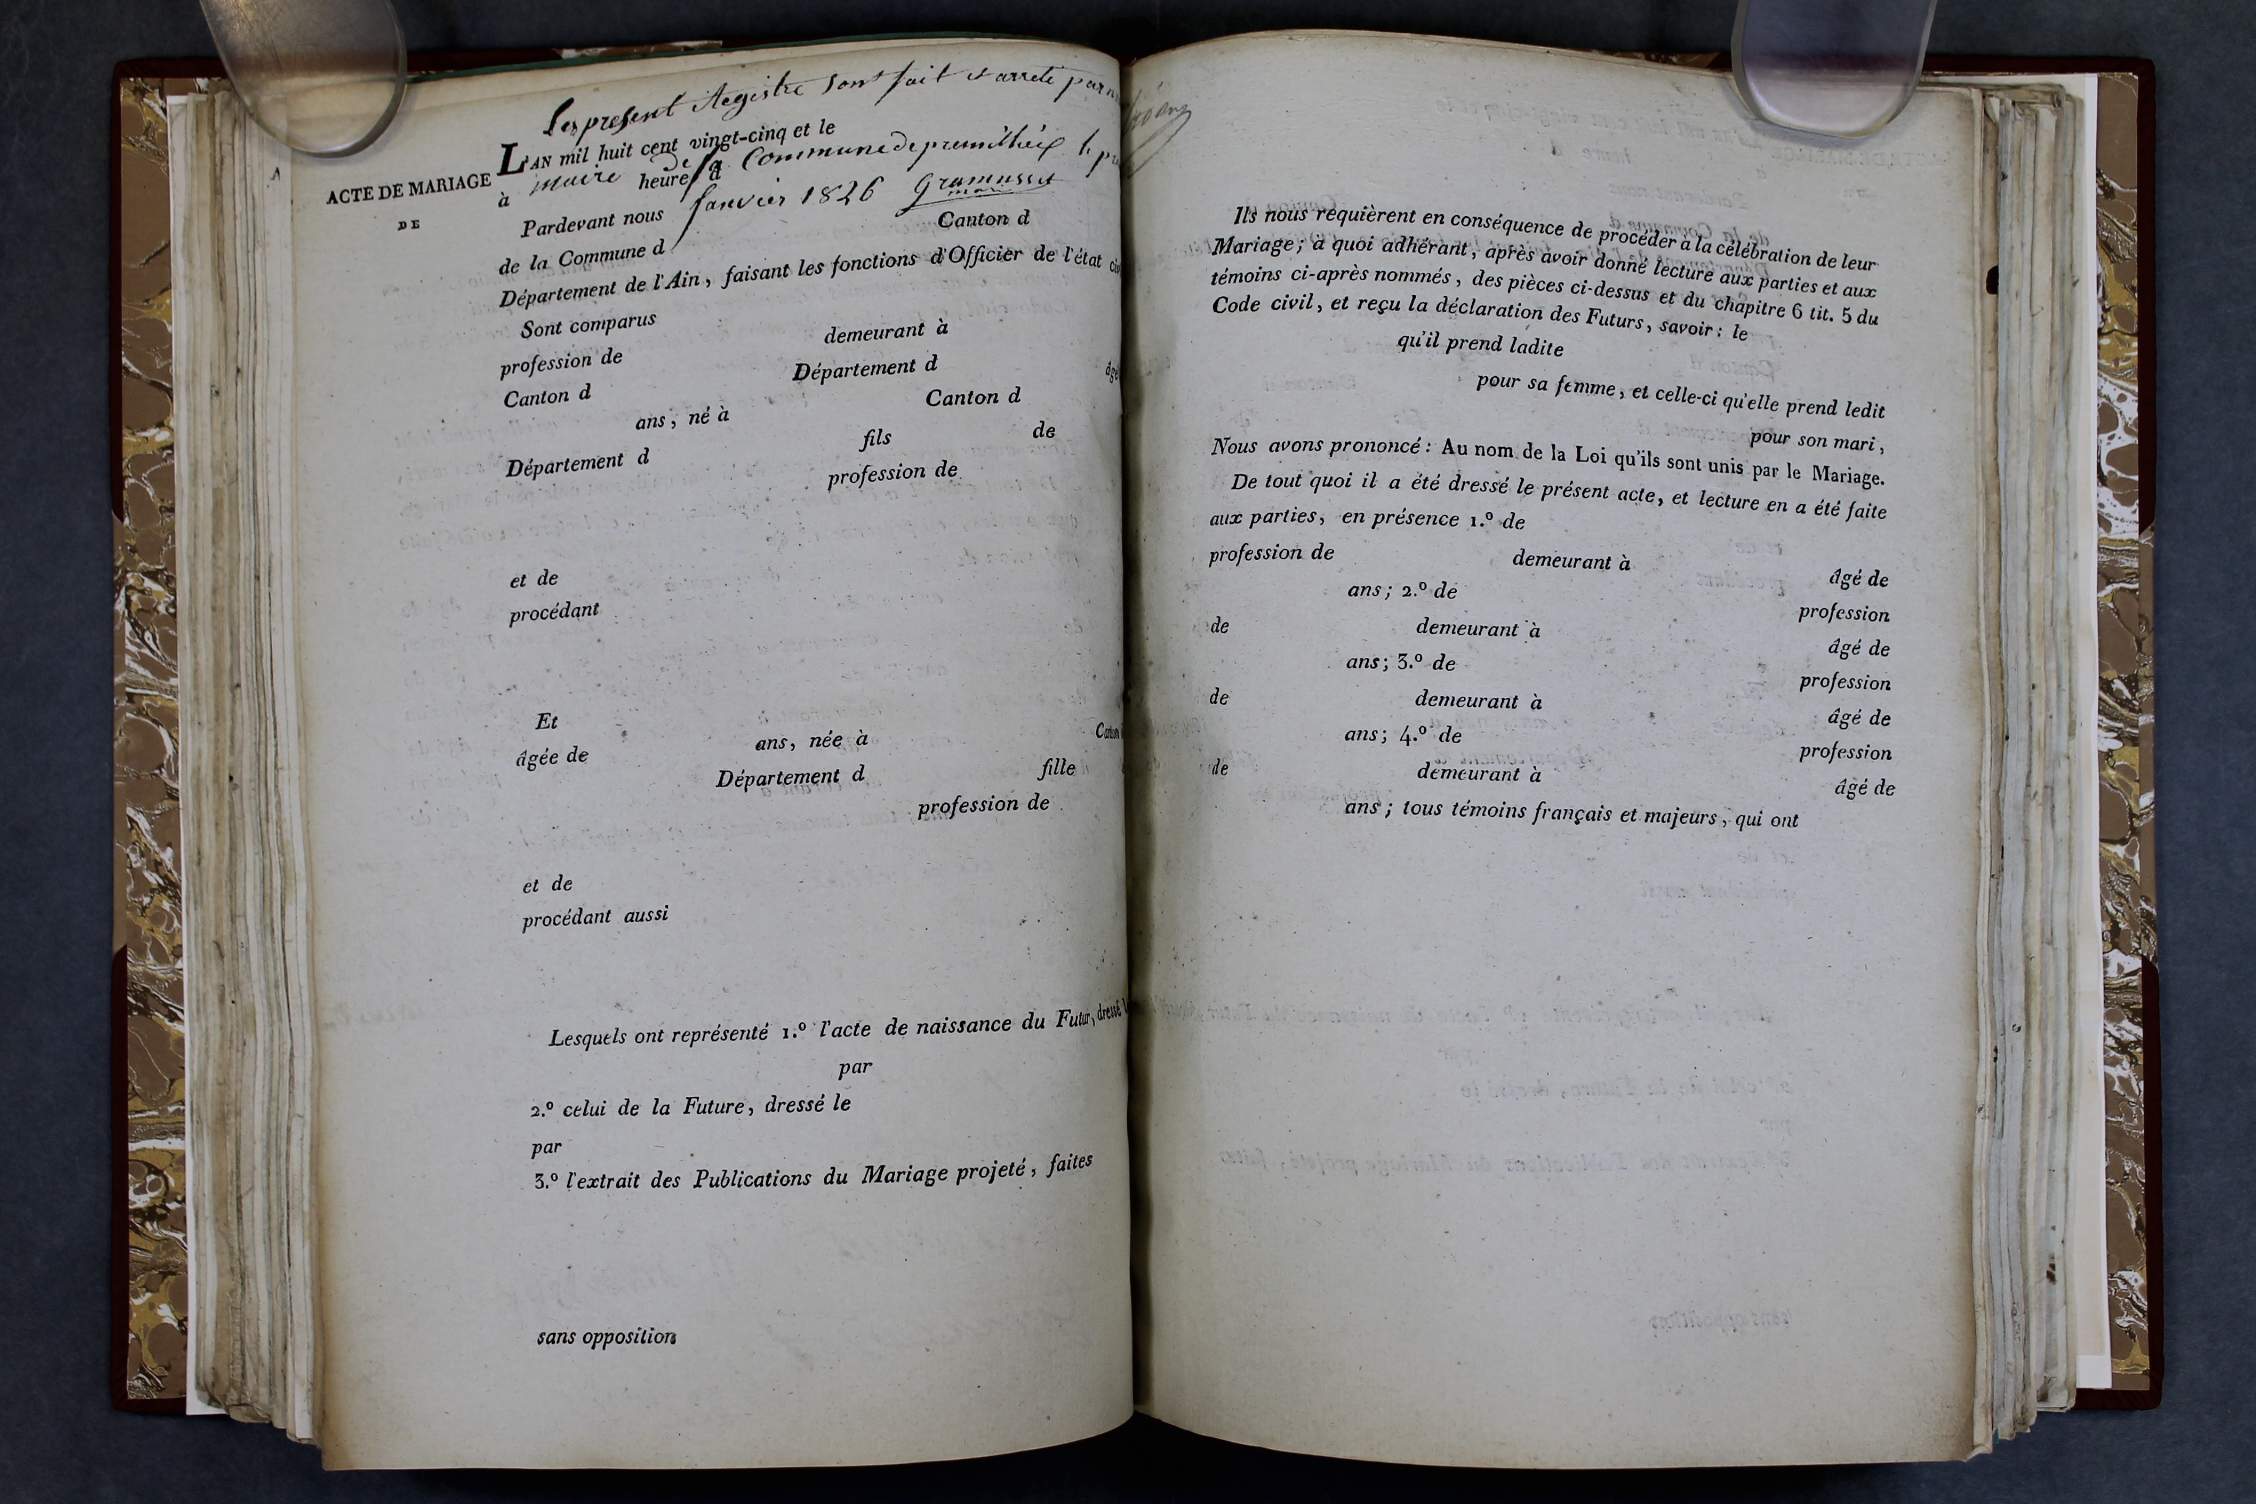 Les present Registre sont fait et arreté par
L'AN mil huit cent vingt-cinq et le
maire de la Commune de premilhieu le
à heure d
Janvier 1826
ACTE DE MARIAGE
DE
Pardevant nous
de la Commune d Canton d
Département de l'Ain, faisant les fonctions d'Officier de l'état
Sont comparus
profession de demeurant à
Canton d Département d âgé
ans, né à Canton d
Département d fils de
profession de
et de
procédant
Et
âgée de ans, née à Canton
Département d fille
profession de
et de
procédant aussi
Lesquels ont représenté 1.º l'acte de naissance du Futur, dressé
par
2.º celui de la Future, dressé le
par
3.º l'extrait des Publications du Mariage projeté, faites
sans opposition
Ils nous requièrent en conséquence de procéder à la célébration de leur
Mariage; à quoi adhérant, après avoir donné lecture aux parties et aux
témoins ci-après nommés, des pièces ci-dessus et du chapitre 6 tit. 5 du
Code civil, et reçu la déclaration des Futurs, savoir: le
qu'il prend ladite
pour sa femme, et celle-ci qu'elle prend ledit
pour son mari,
Nous avons prononcé: Au nom de la Loi qu'ils sont unis par le Mariage.
De tout quoi il a été dressé le présent acte, et lecture en a été faite
aux parties, en présence 1.º de
profession de demeurant à âgé de
ans; 2.º de profession
de demeurant à âgé de
ans; 3.º de profession
de demeurant à âgé de
ans; 4.º de profession
de demeurant à âgé de
ans; tous témoins français et majeurs, qui ont